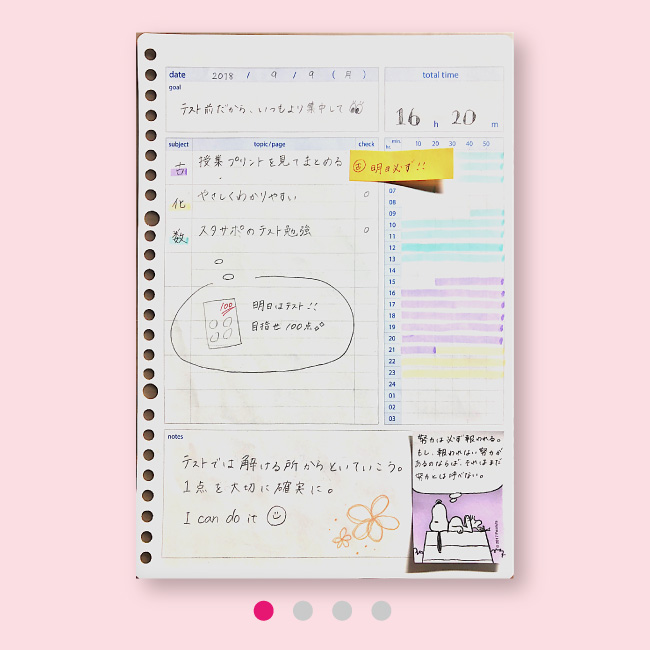 date 2018 / 9 / 9 (月)
goal
テスト前だから、いつもより集中して
total time
16 h 20 m
subject topic/page check
min. 10 20 30 40 50
hr.
古 授業プリントを見てまとめる
古 明日必ず!!
化 やさしくわかりやすい
数 スタサポのテスト勉強
07
08
09
10
11
12
13
14
15
16
17
18
19
20
21
22
23
24
01
02
03
100
明日はテスト!!
目指せ100点。
notes
テストでは解ける所からといていこう。
1点を大切に確実に。
I can do it
努力は必ず報われる。
もし、報われない努力が
あるのならば、それはまだ
努力とは呼べない。